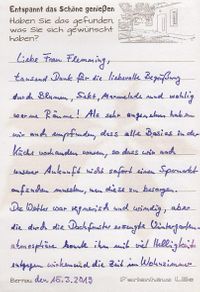 Entspannt das Schöne genießen
Haben Sie das gefunden,
was Sie sich gewünscht
haben?
Liebe Frau Flemming,
tausend Dank für die liebevolle Begrüßung
durch Blumen, Sekt, Marmelade und wohlig
warme Räume! Als sehr angenehm haben
wir auch empfunden, dass alle Basics in der
Küche vorhanden waren, so dass wir nach
unserer Ankunft nicht sofort einen Supermarkt
aufsuchen mussten, um diese zu besorgen.
Das Wetter war regnerisch und windig, aber
die durch die Dachfenster erzeugte Wintergarten-
atmosphäre konnte ihm mit viel Helligkeit
entgegen wirken und die Zeit im Wohnzimmer
Bernau, den 15.3.2019
Ferienhaus Lille